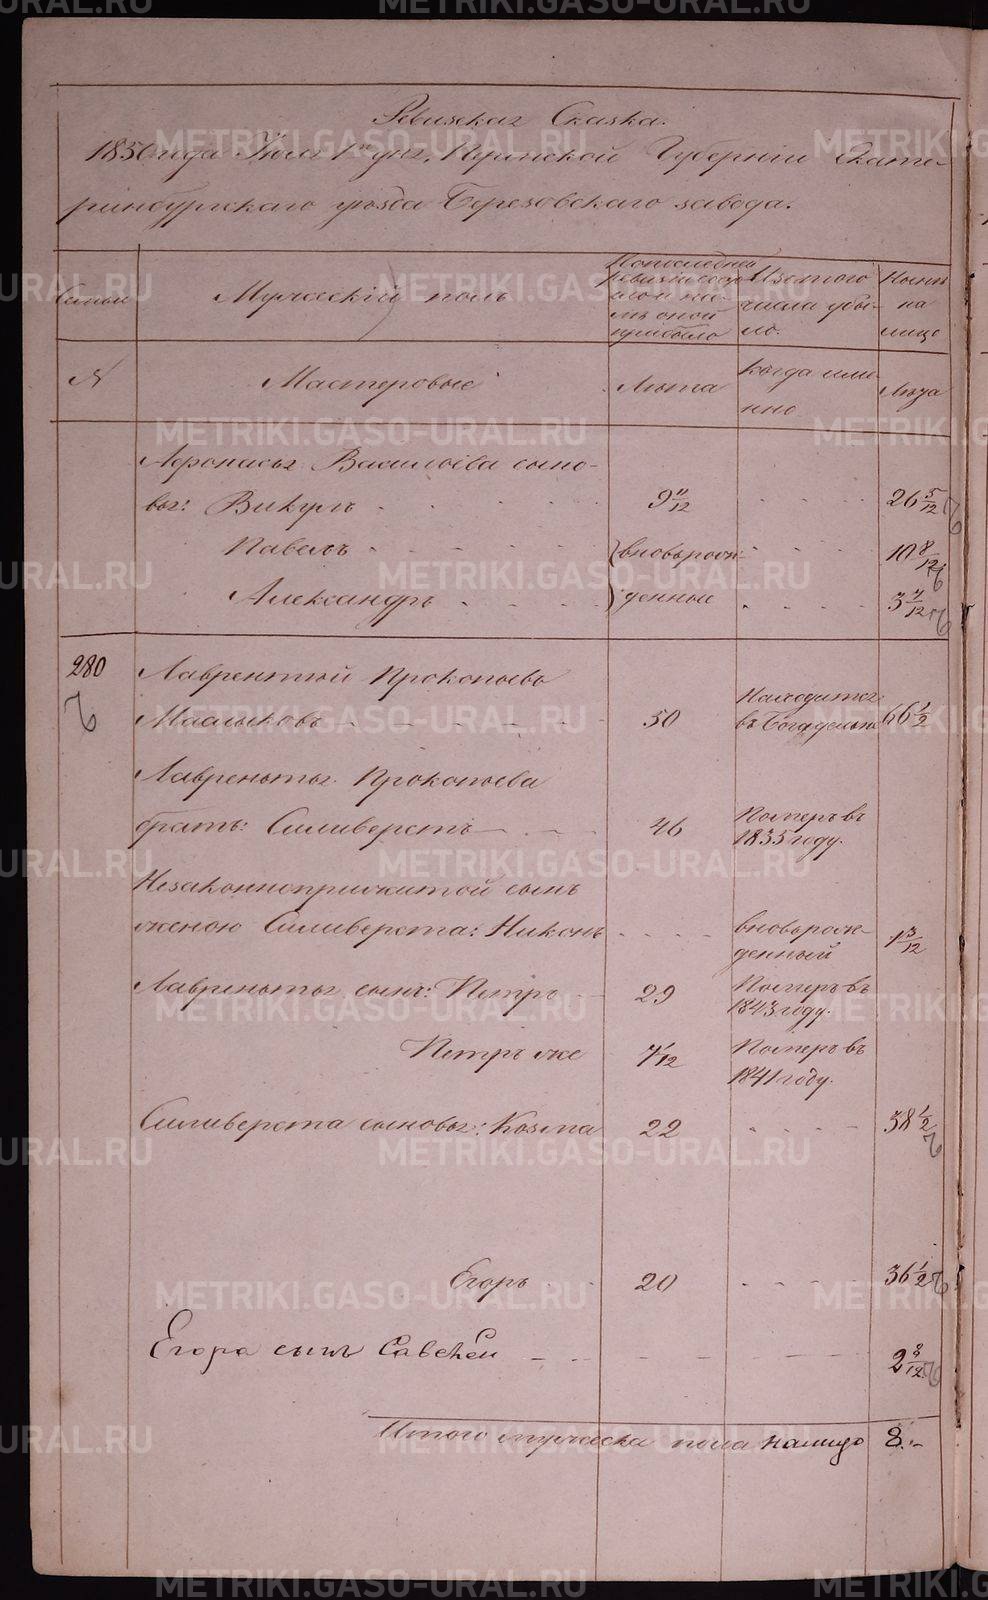 Ревизская Сказка.
1850 года Июля 1го дня, Пермской Губернии Екате-
ринбургскаго уѣзда Березовскаго завода.
Семьи
Мужескій полъ
По последней ревизіи состояло и после оной прибыло
Изъ того числа убыло.
Ныне на лицо
№
Мастеровые
Лѣта
когда именно
Лѣта
Афонасья Васильева сыно-
вья: Викулъ 9 11/12 26 5/12
Павелъ вновьрож- 10 8/12
Александръ денные 3 7/12
280 Лаврентій Прокопьевъ
Маслыковъ 50 Находится въ богадельне 66 1/2
Лаврентья Прокопьева
братъ: Силиверстъ 46 Померъ въ 1835 году.
Незаконноприжитой сынъ
женою Силиверста: Никонъ вновьрожденный 1 3/12
Лаврентья сынъ: Петръ 29 Померъ въ 1843 году.
Петръ же 7/12 Померъ въ 1841 году.
Силиверста сыновья: Козма 22 38 1/2
Егоръ 20 36 1/2
Егора сынъ Савелей 2 8/12
Итого мужеска пола налицо 8.
METRIKI.GASO-URAL.RU